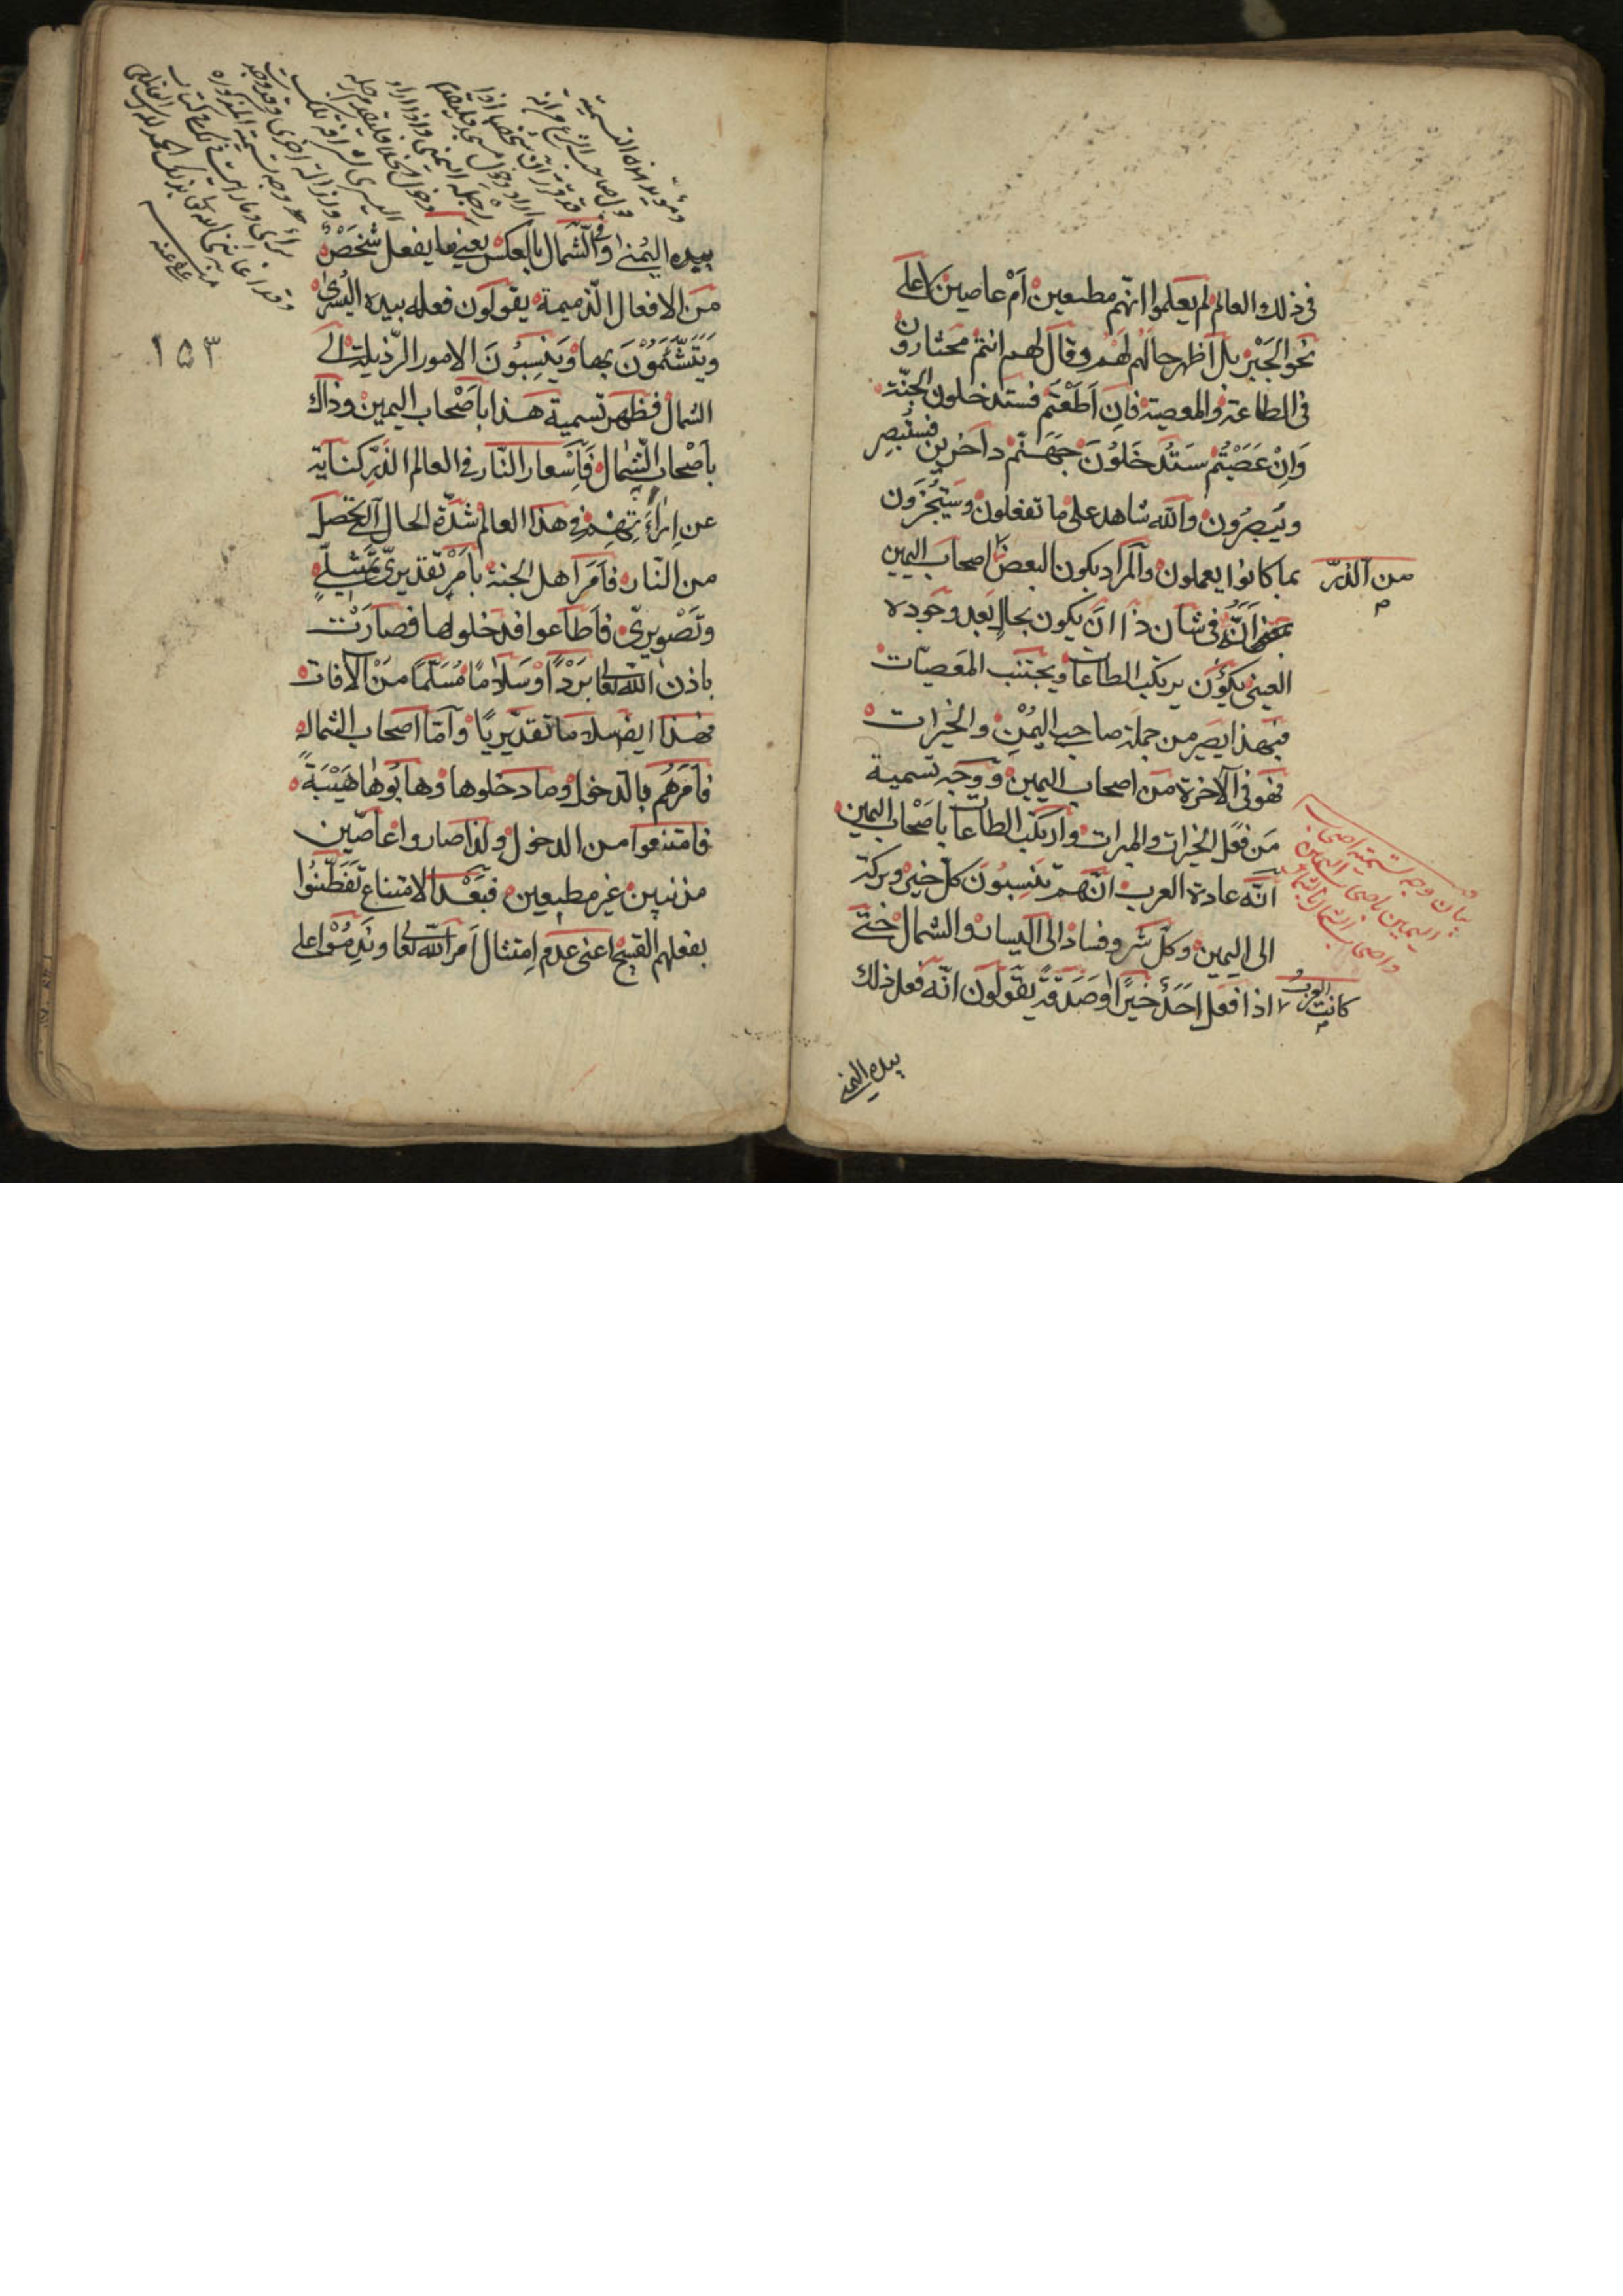 فى ذلك العالم لم يعلموا انهم مطيعين اَمْ عاصين لا على
نحو الجَبْر بل اَظهر حالهم لهُم وقال لهم انتم مختارون
فى الطاعة والمعصية فاِن اَطَعْتم فستدخلون الجنّة
وَاِنْ عَصَيْتُم سَتُدخَلُونَ جَهَنّم داخرين فستُبصِر
ويُبصِرُون والله شاهد على ما تفعلون وسَيُجْزَون
بما كانوا يعملون والمراد بكون البعض اصحاب اليمين
من الذرّ
انَّه فى شان ذا ان يكون بحالٍ بعد وجوده
العينى يكون يرتكب الطاعات ويجتنب المعصيّات
فبهذا يصير من جملة صاحب اليُمْنِ والخيرات
فهو فى الآخرة من اصحاب اليمين ووجه تسمية
مَن فعَل الخيرات والمبرات وارتكب الطاعات باَصْحاب اليمين
بيان وجه تسمية اصحاب
اليمين باصحاب اليمين
واصحاب الشمال بالشمال
انّه عادة العرب انّهم يَنسِبُونَ كلّ خير وبركة
الى اليمين وكلّ شر وفساد الى اليسار والشمال حتّى
كانت العرب اذا فعل احَدٌ خيرًا اوصَدَقةً يقولون انّه فعل ذلك
بيده اليمنى
بيده اليُمنى وفى الشّمال بالعكس يعنى ما يفعل شخَصٌ
من الافعال الذميمة يقولون فعله بيده اليُسرىٰ
وَيَتَشَّئَمُوْنَ بها وَيَنسِبُونَ الامور الرّذيلة الى
۱۵۳
الشمال فظهر تسمية هذا باَصْحاب اليمين وذاك
باَصْحاب الشّمال فَاِسْعار النّار فى العالم الذرّ كناية
عن اِراءَتِهِم فى هذا العالم شدّة الحال التى تحصل
من النّار فاَمَرَ اهل الجنة باَمْرٍ تقديرىّ تمثيلىٍّ
وتَصْويرىّ فاَطاعوا فدخلوا لها فصارَتْ
باذن الله تعالى بَرْدًا وَسَلامًا مُسَلّمًا من الآفات
فهذا ايضًا سلاما تقديريًّا وَاَمّا اصحاب الشمال
فاَمَرَهُم بالدخول وما دخلوها وهابُوها هَيْبَةً
فامتنعوا من الدخول ولذا صاروا عاصّين
مذنبين غير مطيعين فبَعْد الامتناع تَفَطّنُوا
بفعلهم القبيح اعنى عدم اِمتثال اَمر الله تعالى ونَدِمُوْا على